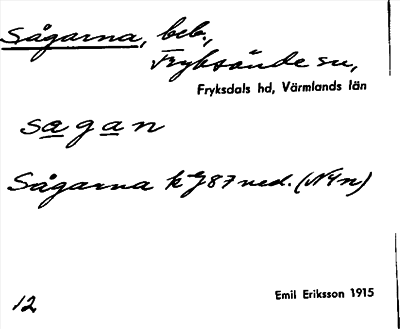 Sågarna, beb.,
Fryksände sn,
Fryksdals hd, Värmlands län
sagan
Sågarna
12
Emil Eriksson 1915